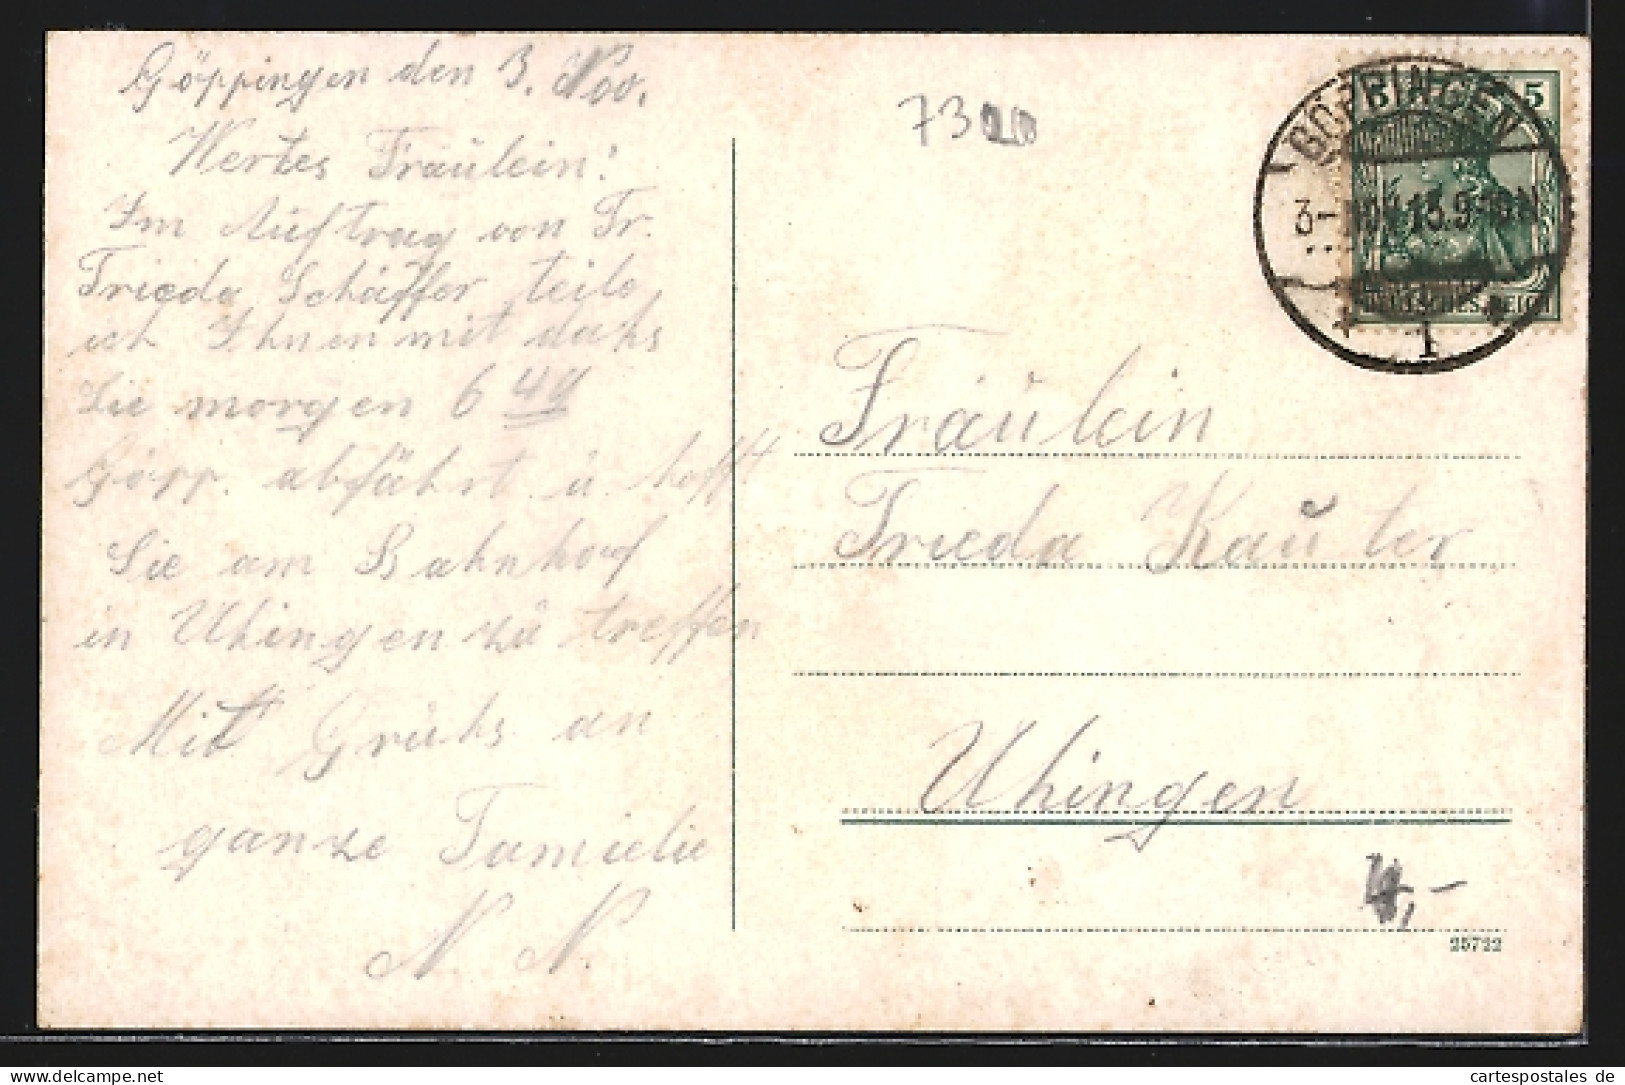 Göppingen den 3. Nov.
Wertes Fräulein!
Im Auftrag von Fr.
Frieda Schäffer teile
ich Ihnen mit dahs
Sie morgen 6 49
Göpp. abfährt u. hofft
Sie am Bahnhof
in Uhingen zu treffen
Mit Gruhs an
ganze Familie
N. N.
73
GÖPPINGEN
3-NOV.13.9-10N
1
5
DEUTSCHES REICH
Fräulein
Frieda Kauter
Uhingen
4,-
25722
Visit our eStore at
cartespostales de